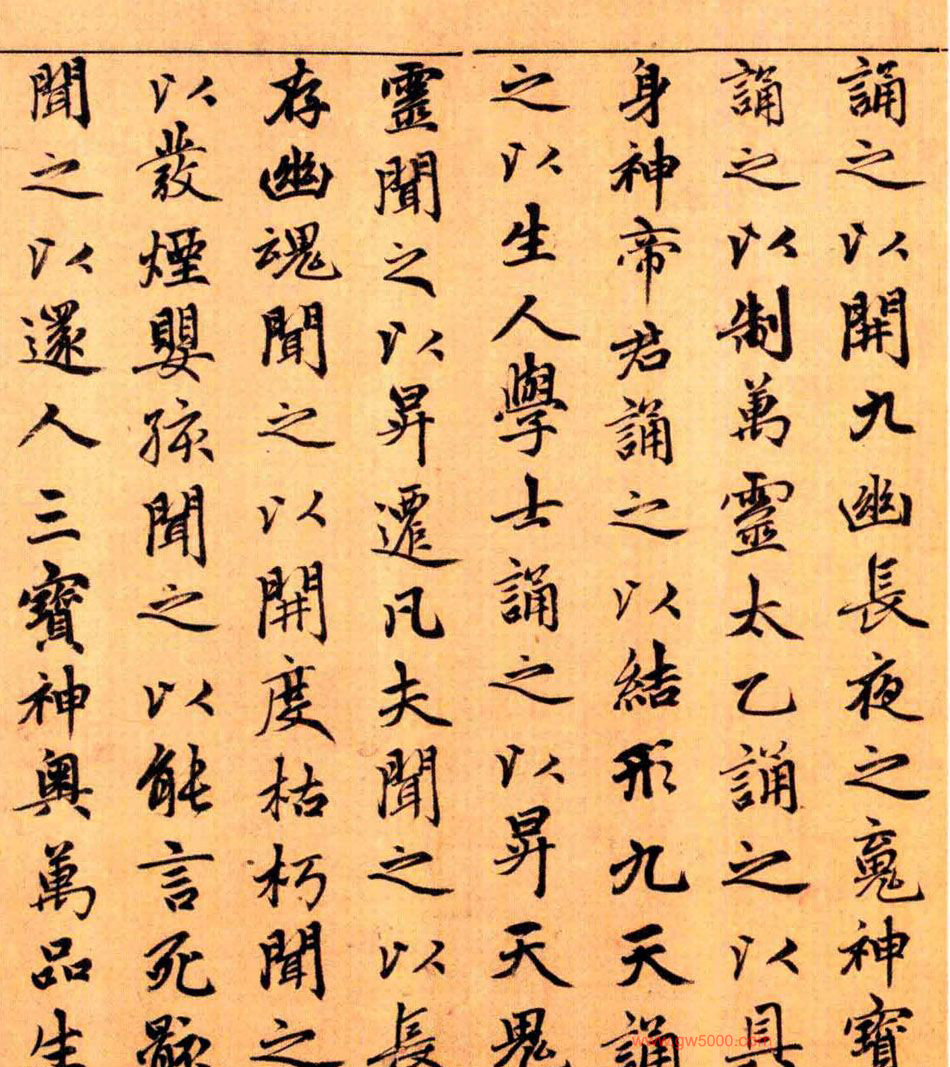 誦之以開九幽長夜之魂神寶
誦之以制萬靈太乙誦之以具
身神帝君誦之以結形九天誦
之以生人學士誦之以昇天鬼
靈聞之以昇遷凡夫聞之以長
存幽魂聞之以開度枯朽聞之
以發煙嬰孩聞之以能言死骸
聞之以還人三寶神奧萬品生
www.gw5000.com